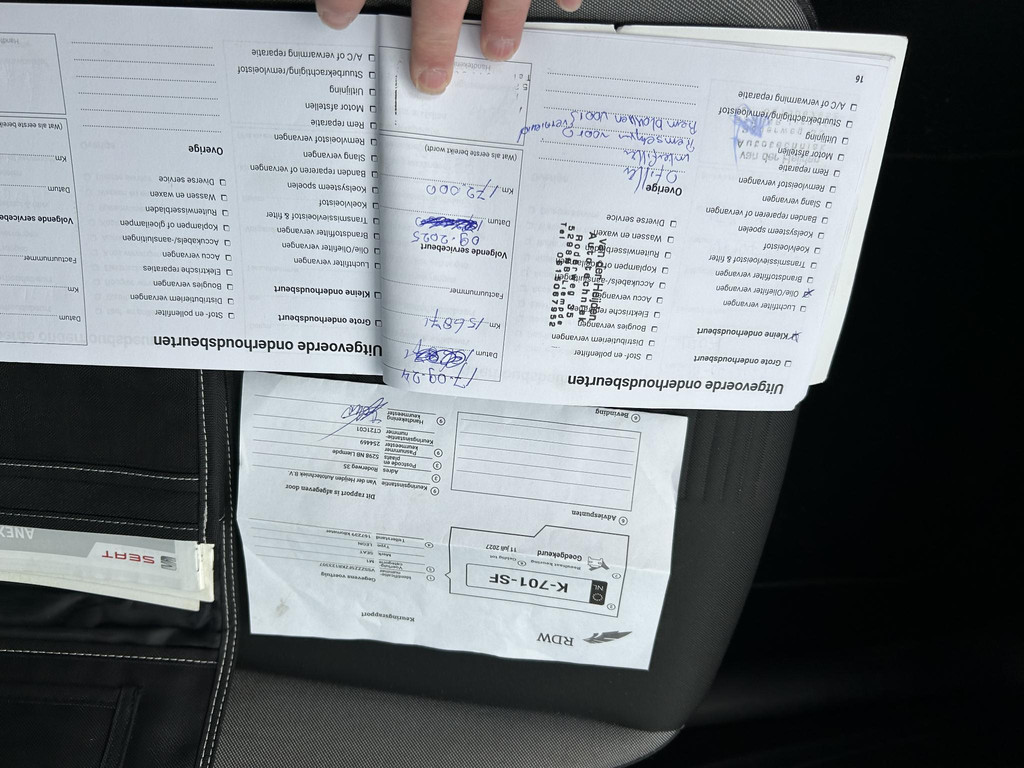 16
Uitgevoerde onderhoudsbeurten
Grote onderhoudsbeurt
Kleine onderhoudsbeurt
Luchtfilter vervangen
Olie/Oliefilter vervangen
Brandstoffilter vervangen
Transmissievloeistof & filter
Koelvloeistof
Koelsysteem spoelen
Banden repareren of vervangen
Slang vervangen
Remvloeistof vervangen
Rem reparatie
Motor afstellen
Uitlijning
Stuurbekrachtiging/remvloeistof
A/C of verwarming reparatie
Stof- en pollenfilter
Distributieriem vervangen
Bougies vervangen
Elektrische reparaties
Accu vervangen
Accukabels/-aansluitingen
Koplampen of gloeilampen
Ruitenwisserbladen
Wassen en waxen
Diverse service
Overige
O Filter
interfilter
Remschijven voor
Remblokken voor
Van der Heijden
Autotechniek
Roderweg 35
5298 NB Liempde
17-09-24
Datum
Km 156871
Factuurnummer
Volgende servicebeurt
09-2025
Datum
Km 172.000
(Wat als eerste bereikt wordt)
Uitgevoerde onderhoudsbeurten
Grote onderhoudsbeurt
Kleine onderhoudsbeurt
Luchtfilter vervangen
Olie/Oliefilter vervangen
Brandstoffilter vervangen
Transmissievloeistof & filter
Koelvloeistof
Koelsysteem spoelen
Banden repareren of vervangen
Slang vervangen
Remvloeistof vervangen
Rem reparatie
Motor afstellen
Uitlijning
Stuurbekrachtiging/remvloeistof
A/C of verwarming reparatie
Stof- en pollenfilter
Distributieriem vervangen
Bougies vervangen
Elektrische reparaties
Accu vervangen
Accukabels/-aansluitingen
Koplampen of gloeilampen
Ruitenwisserbladen
Wassen en waxen
Diverse service
Overige
Datum
Km
Factuurnummer
Volgende servicebeurt
Datum
Km
RDW
Keuringsrapport
NL
K-701-SF
Goedgekeurd
11 juli 2027
Gegevens voertuig
Merk SEAT
Type LEON
Adviespunten
Bevinding
Dit rapport is afgegeven door
Keuringsinstantie Van der Heijden Autotechniek B.V.
Adres Roderweg 35
Postcode en plaats 5298 NB Liempde
Pasnummer keurmeester 254469
Keuringsinstantie-nummer CT21C01
Handtekening keurmeester
SEAT